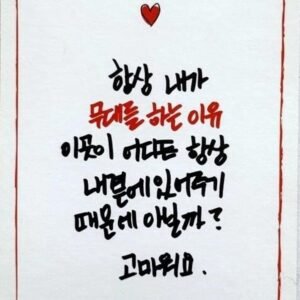 항상 내가
무대를 하는 이유
이곳이 어디든 항상
내곁에 있어주기
때문에 아닐까?
고마워요.